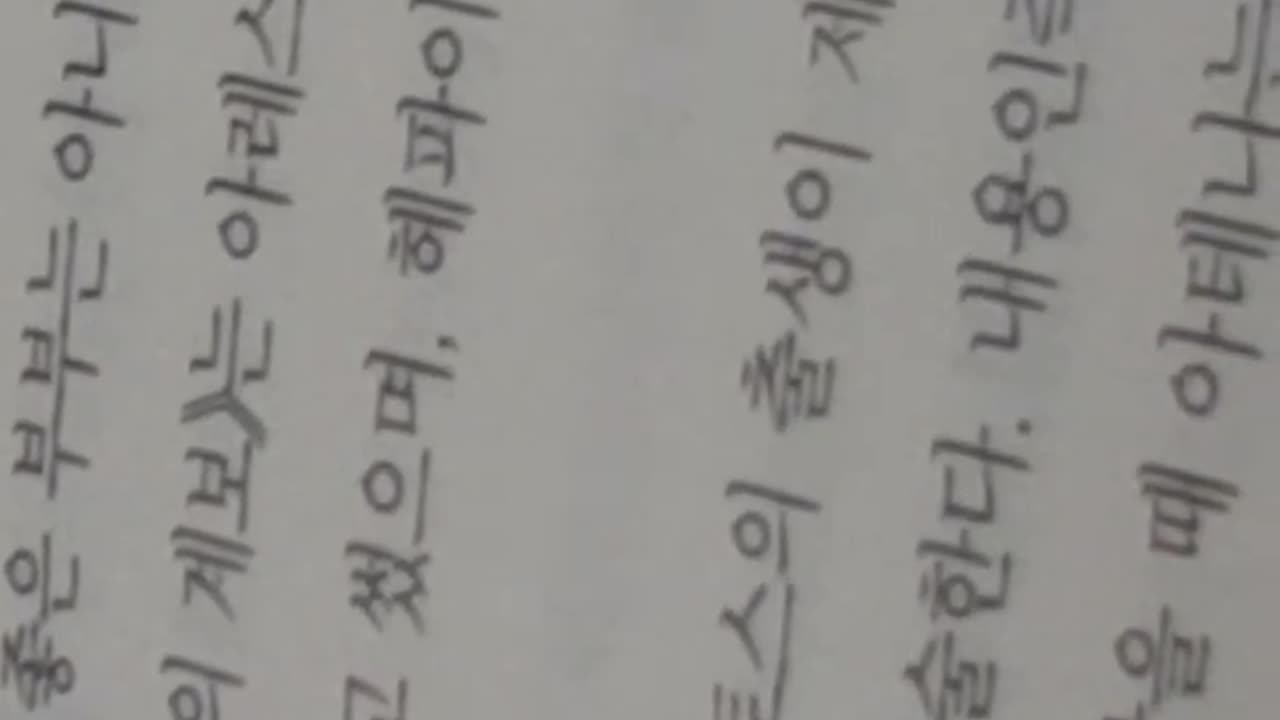 좋은 부부는 아니
의 계보》는 아레스
고 썼으며, 헤파이
토스의 출생이 제
술한다. 내용인
을 때 아테나는